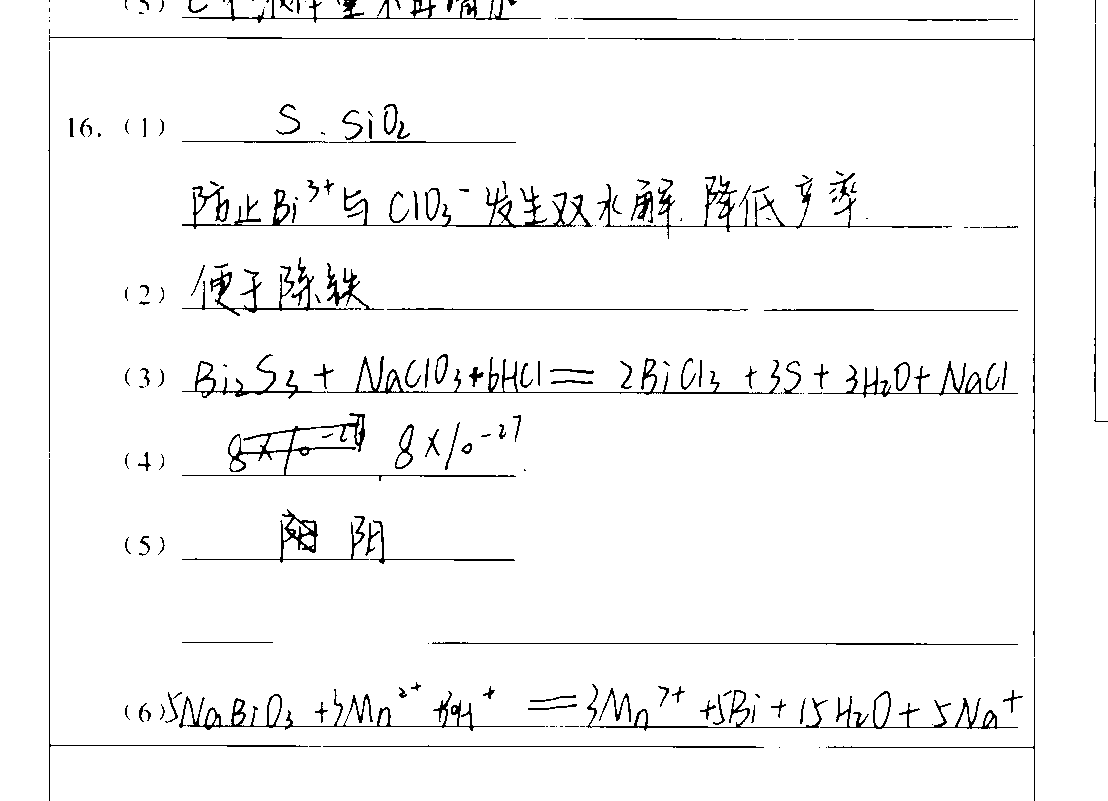 16. (1) S、SiO₂
防止Bi³⁺与ClO₃⁻发生双水解.降低产率.
(2) 便于除铁
(3) Bi₂S₃ + NaClO₃+6HCl == 2BiCl₃ + 3S + 3H₂O + NaCl
(4) 8×10⁻²⁷
(5) 阴
(6) 5NaBiO₃ + 3Mn²⁺ + H⁺ == 3Mn⁷⁺ + 5Bi + 15H₂O + 5Na⁺